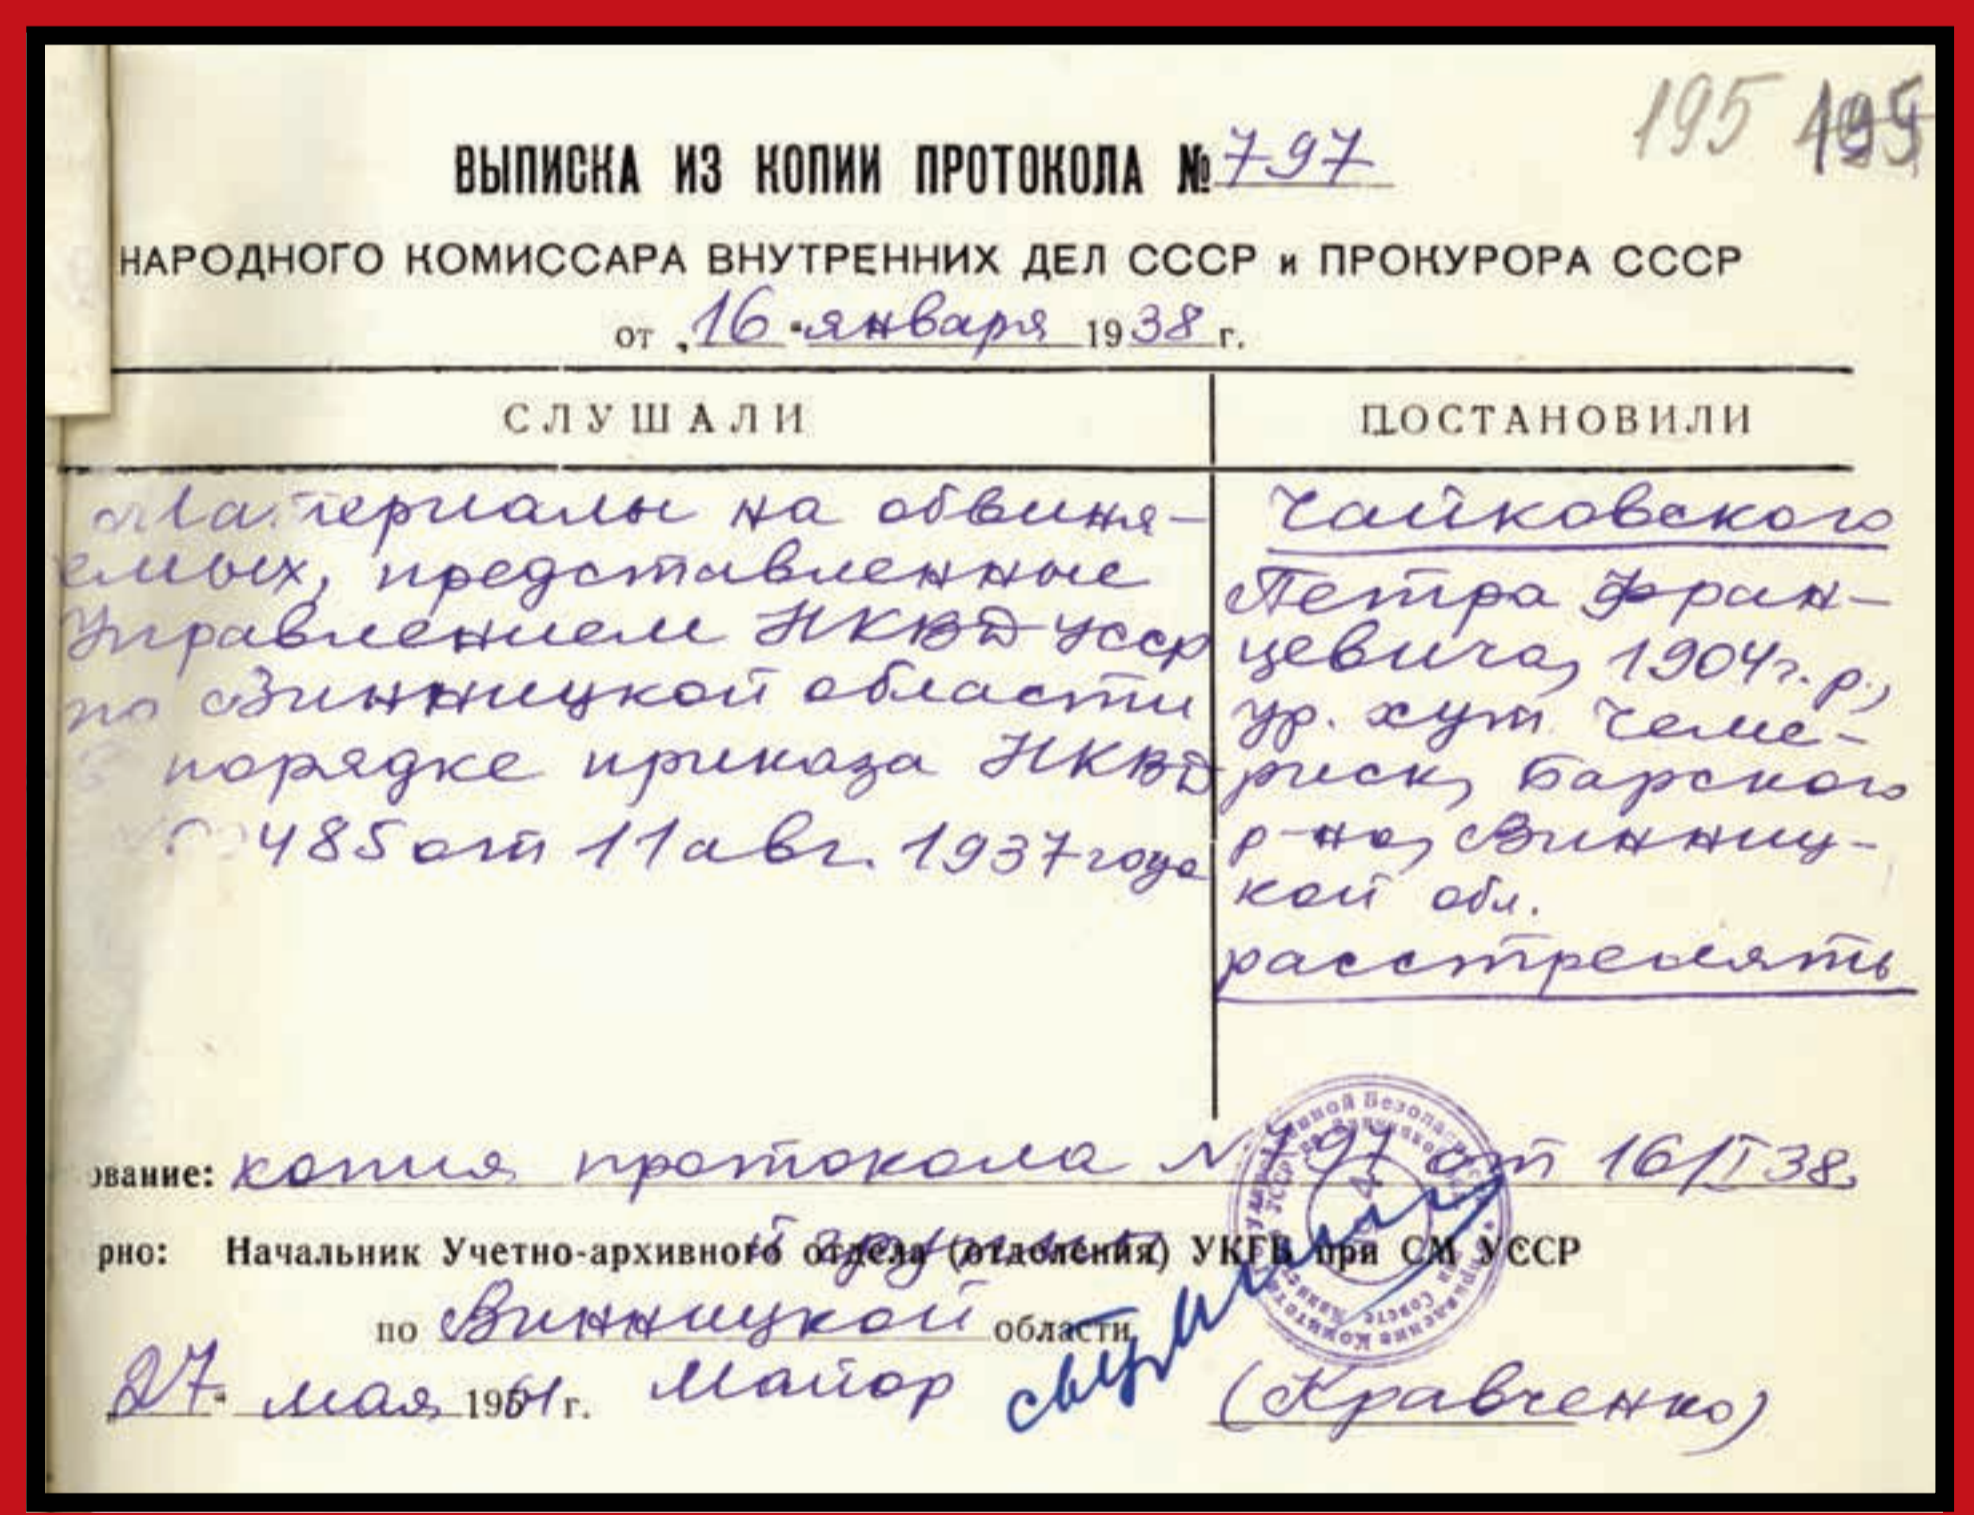 195 195
ВЫПИСКА ИЗ КОПИИ ПРОТОКОЛА № 797
НАРОДНОГО КОМИССАРА ВНУТРЕННИХ ДЕЛ СССР и ПРОКУРОРА СССР
от „16" января 1938 г.
СЛУШАЛИ
Материалы на обвиня-
емых, представленные
Управлением НКВД УССР
по Винницкой области
порядке приказа НКВД
485 от 11 авг. 1937 года
ПОСТАНОВИЛИ
Чайковского
Петра Фран-
цевича, 1904 г.р.,
ур. хут. Чеме-
риск, Барского
р-на, Винниц-
кой обл.
расстрелять
ование: копия протокола № 797 от 16/I 38.
рно: Начальник Учетно-архивного отдела (отделения) УКГБ при СМ УССР
й группы
по Винницкой области
„27" мая 1961 г. Майор (Кравченко)